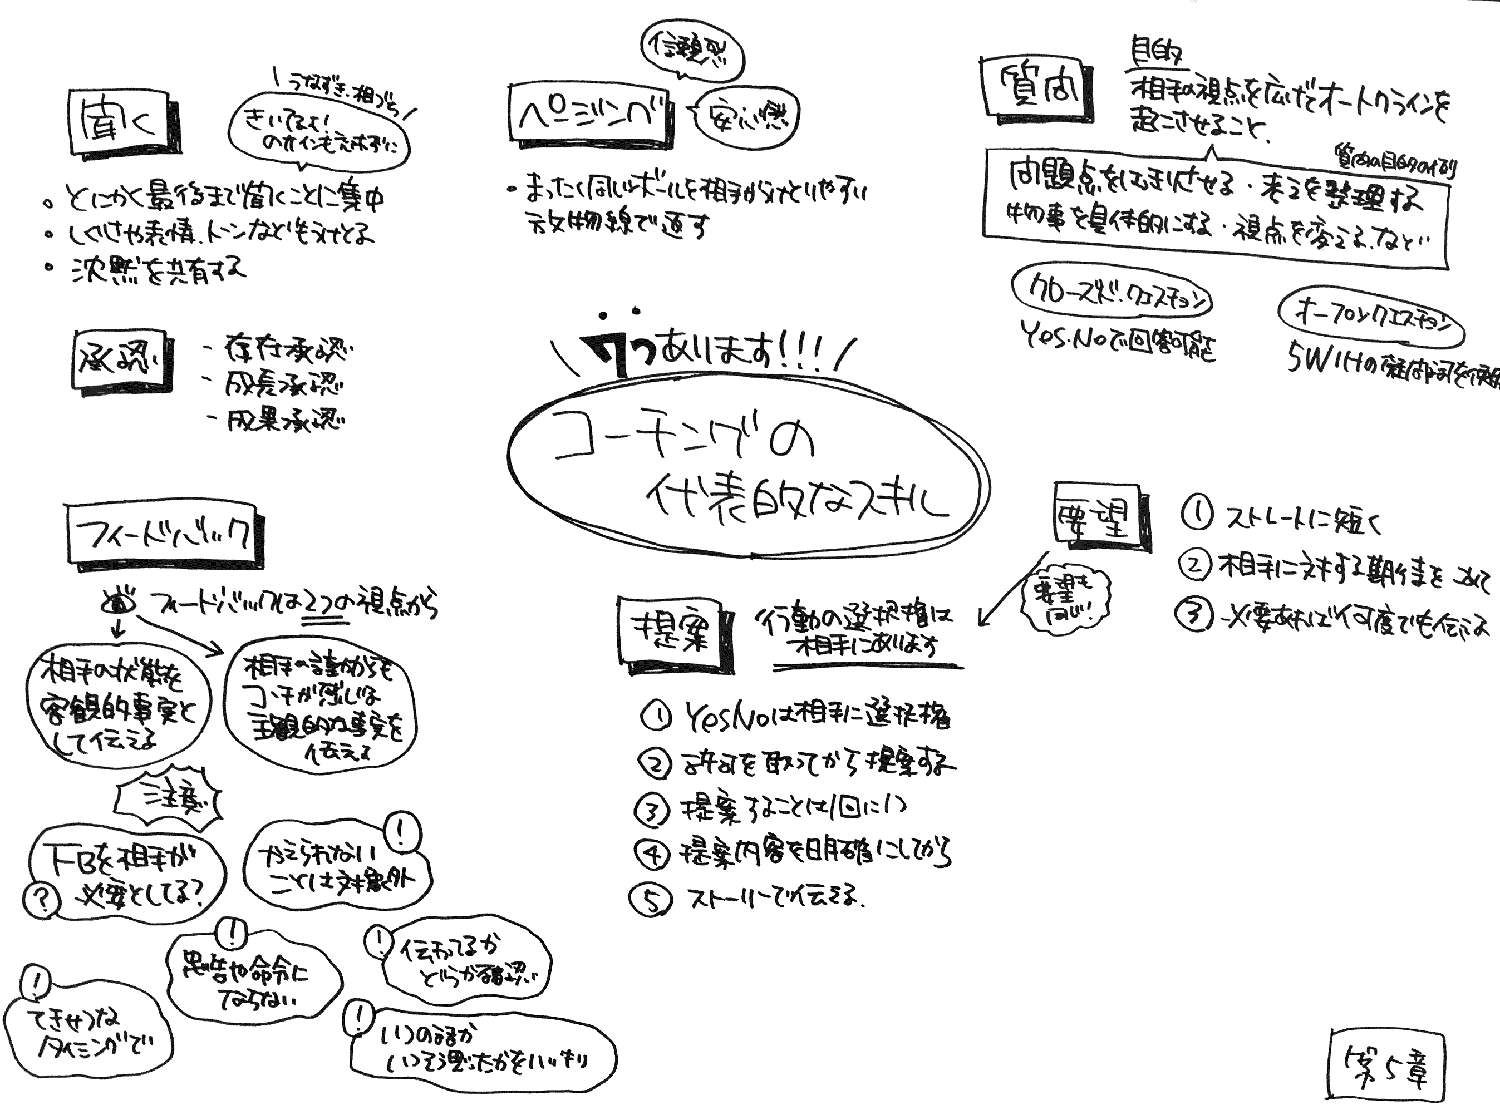 聞く
うなずき、相づち
きいてるよ!
のサインも忘れずに
• とにかく最後まで聞くことに集中
• しぐさや表情、トーンなども受けとる
• 沈黙を共有する
ペーシング
信頼感
安心感
• まったく同じボールを相手が受けとりやすい
放物線で返す
質問
目的
相手の視点を広げてオートクラインを
起こさせること、
質問の目的の例
問題点をはっきりさせる・考えを整理する
物事を具体的にする・視点を変える、など
クローズド・クエスチョン
Yes・Noで回答可能
オープンクエスチョン
5W1Hの疑問詞を使用
承認
- 存在承認
- 成長承認
- 成果承認
7つあります!!!
コーチングの
代表的なスキル
フィードバック
フィードバックは2つの視点から
相手の状態を
客観的事実と
して伝える
相手の話から
コーチが感じた
主観的な事実を
伝える
ご注意
FBを相手が
必要としてる?
?
!
かえられない
ことは対象外
!
忠告や命令に
ならない
!
伝わってるか
どうか確認
!
てきせつな
タイミングで
!
いつの話か
いつそう思ったかをハッキリ
要望
① ストレートに短く
② 相手に対する期待を込めて
③ 必要あれば何度でも伝える
要望も
同じ!
提案
行動の選択権は
相手にあります
① YesNoは相手に選択権
② 許可を取ってから提案する
③ 提案することは1回に1つ
④ 提案内容を明確にしてから
⑤ ストーリーで伝える.
第5章